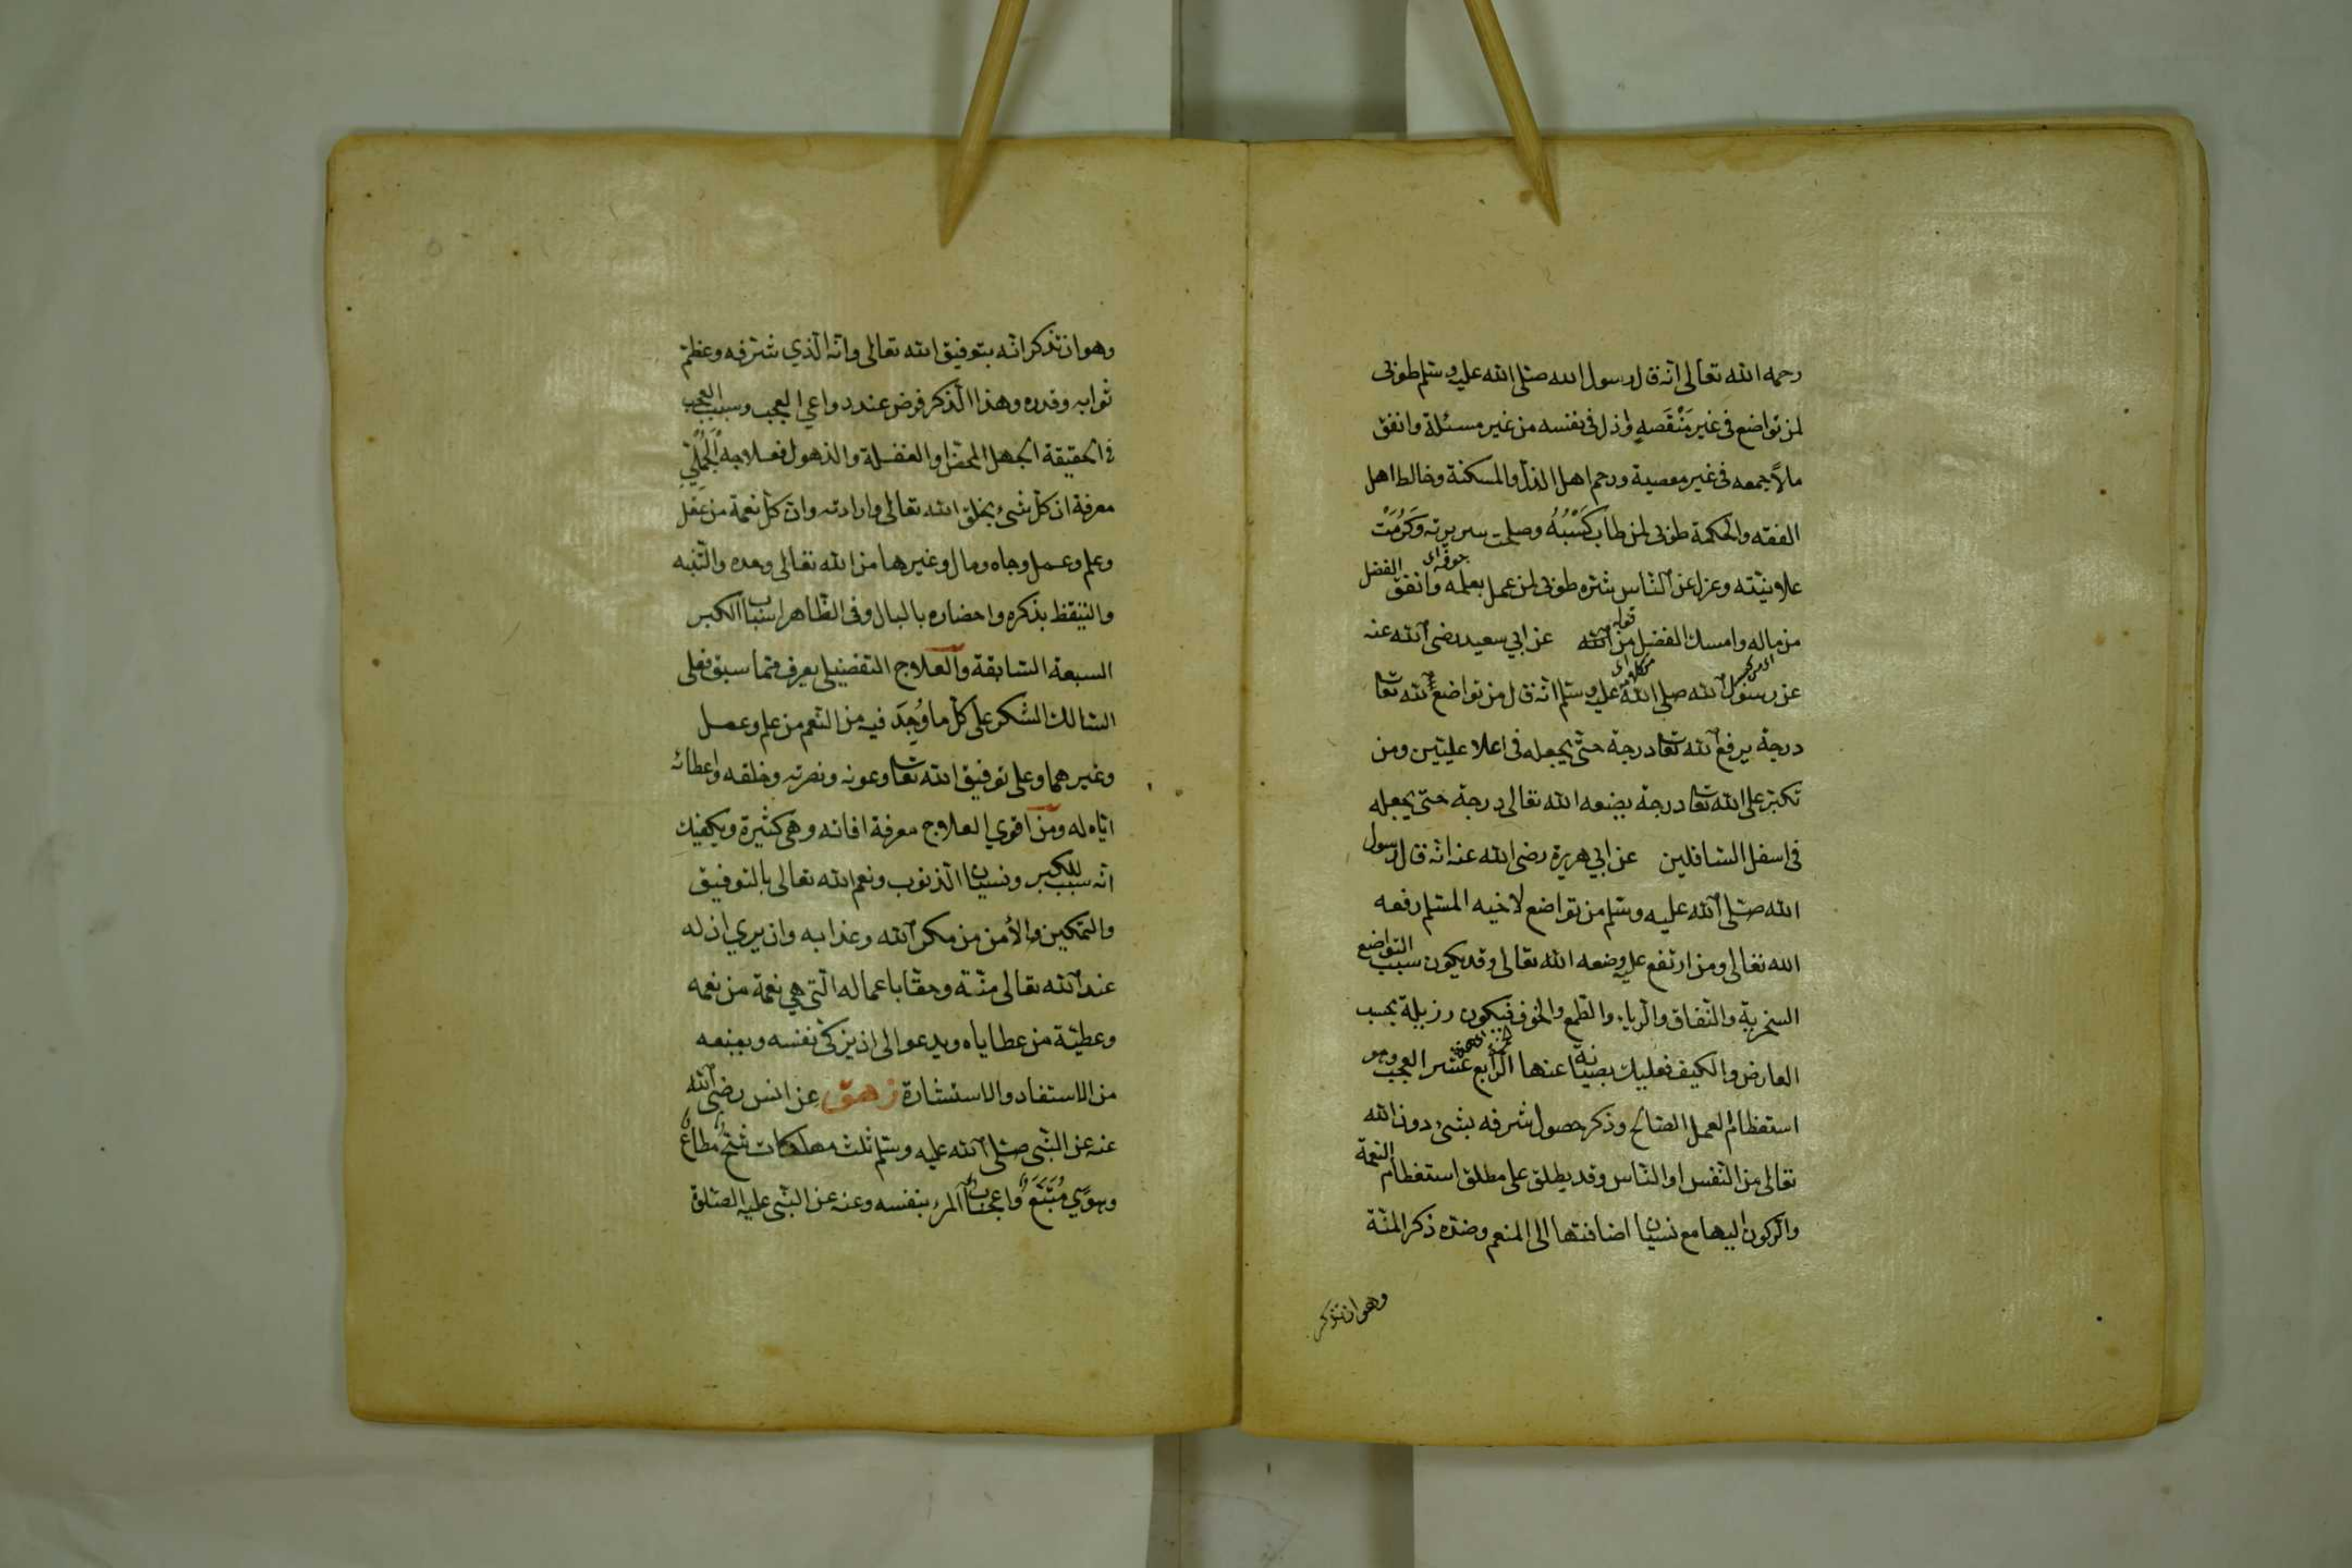 رحمه الله تعالى انه قال رسول الله صلى الله عليه وسلم طوبى
لمن تواضع فى غير منقصة وذل فى نفسه من غير مسئلة وانفق
مالا جمعه فى غير معصية ورحم اهل الذل والمسكنة وخالط اهل
الفقه والحكمة طوبى لمن طاب كَسْبُهُ وصلحت سريرته وَكَرُمَتْ
علانيته وعزل عن الناس شره طوبى لمن عمل بعلمه وانفق الفضل
من ماله وامسك الفضل من قوله عن ابي سعيد رضى الله عنه
عن رسول الله صلى الله عليه وسلم انه قال من تواضع لله تعالى
درجة يرفع الله تعا درجة حتى يجعله فى اعلا عليين ومن
تكبر على الله تعا درجة يضعه الله تعالى درجة حتى يجعله
فى اسفل السافلين عن ابي هريرة رضى الله عنه انه قال رسول
الله صلى الله عليه وسلم من تواضع لاخيه المسلم رفعه
الله تعالى ومن ارتفع عليه وضعه الله تعالى وقد يكون سبب التواضع
السخرية والنفاق والرياء والطمع والخوف فيكون رزيلة بحسب
العارض والكيف فعليك بصيانة عنها الرابع عشر العجب وهو
استعظام العمل الصالح وذكر حصول شرفه بشىء دون الله
تعالى من النفس او الناس وقد يطلق على مطلق استعظام النعمة
والركون اليها مع نسيان اضافتها الى المنعم وضده ذكر المنة
وهو ان تذكر
وهو ان تذكر انه بتوفيق الله تعالى وانه الذي شرفه وعظم
ثوابه وقدره وهذا الذكر فرض عند دواعي العجب وسبب العجب
فى الحقيقة الجهل المحض او الغفلة والذهول فعلاجه الجملي
معرفة ان كل شىء بخلق الله تعالى وارادته وان كل نعمة من عقل
وعلم وعمل وجاه ومال وغيرها من الله تعالى وحده والتنبه
والتيقظ بذكره واحضاره بالبال وفى الظاهر اسباب الكبر
السبعة السابقة والعلاج التفصيلي يعرف مما سبق فعلى
السالك الشكر على كل ما وُجِدَ فيه من النعم من علم وعمل
وغيرهما وعلى توفيق الله تعا وعونه ونصرته وخلقه واعطائه
اياه له ومن اقوي العلاج معرفة افاته وهى كثيرة ويكفيك
انه سبب للكبر ونسيان الذنوب ونعم الله تعالى بالتوفيق
والتمكين والأمن من مكر الله وعذابه وان يري ان له
عند الله تعالى منّة وحقّا باعماله التي هي نعمة من نعمه
وعطية من عطاياه ويدعو الى ان يزكى نفسه ويمنعه
من الاستفاد والاستشارة زهق عن انس رضى الله
عنه عن النبى صلى الله عليه وسلم ثلث مهلكات شحّ مطاع
وهوًي مُتَّبَعٌ واعجاب المرء بنفسه وعنه عن النبى عليه الصلوة